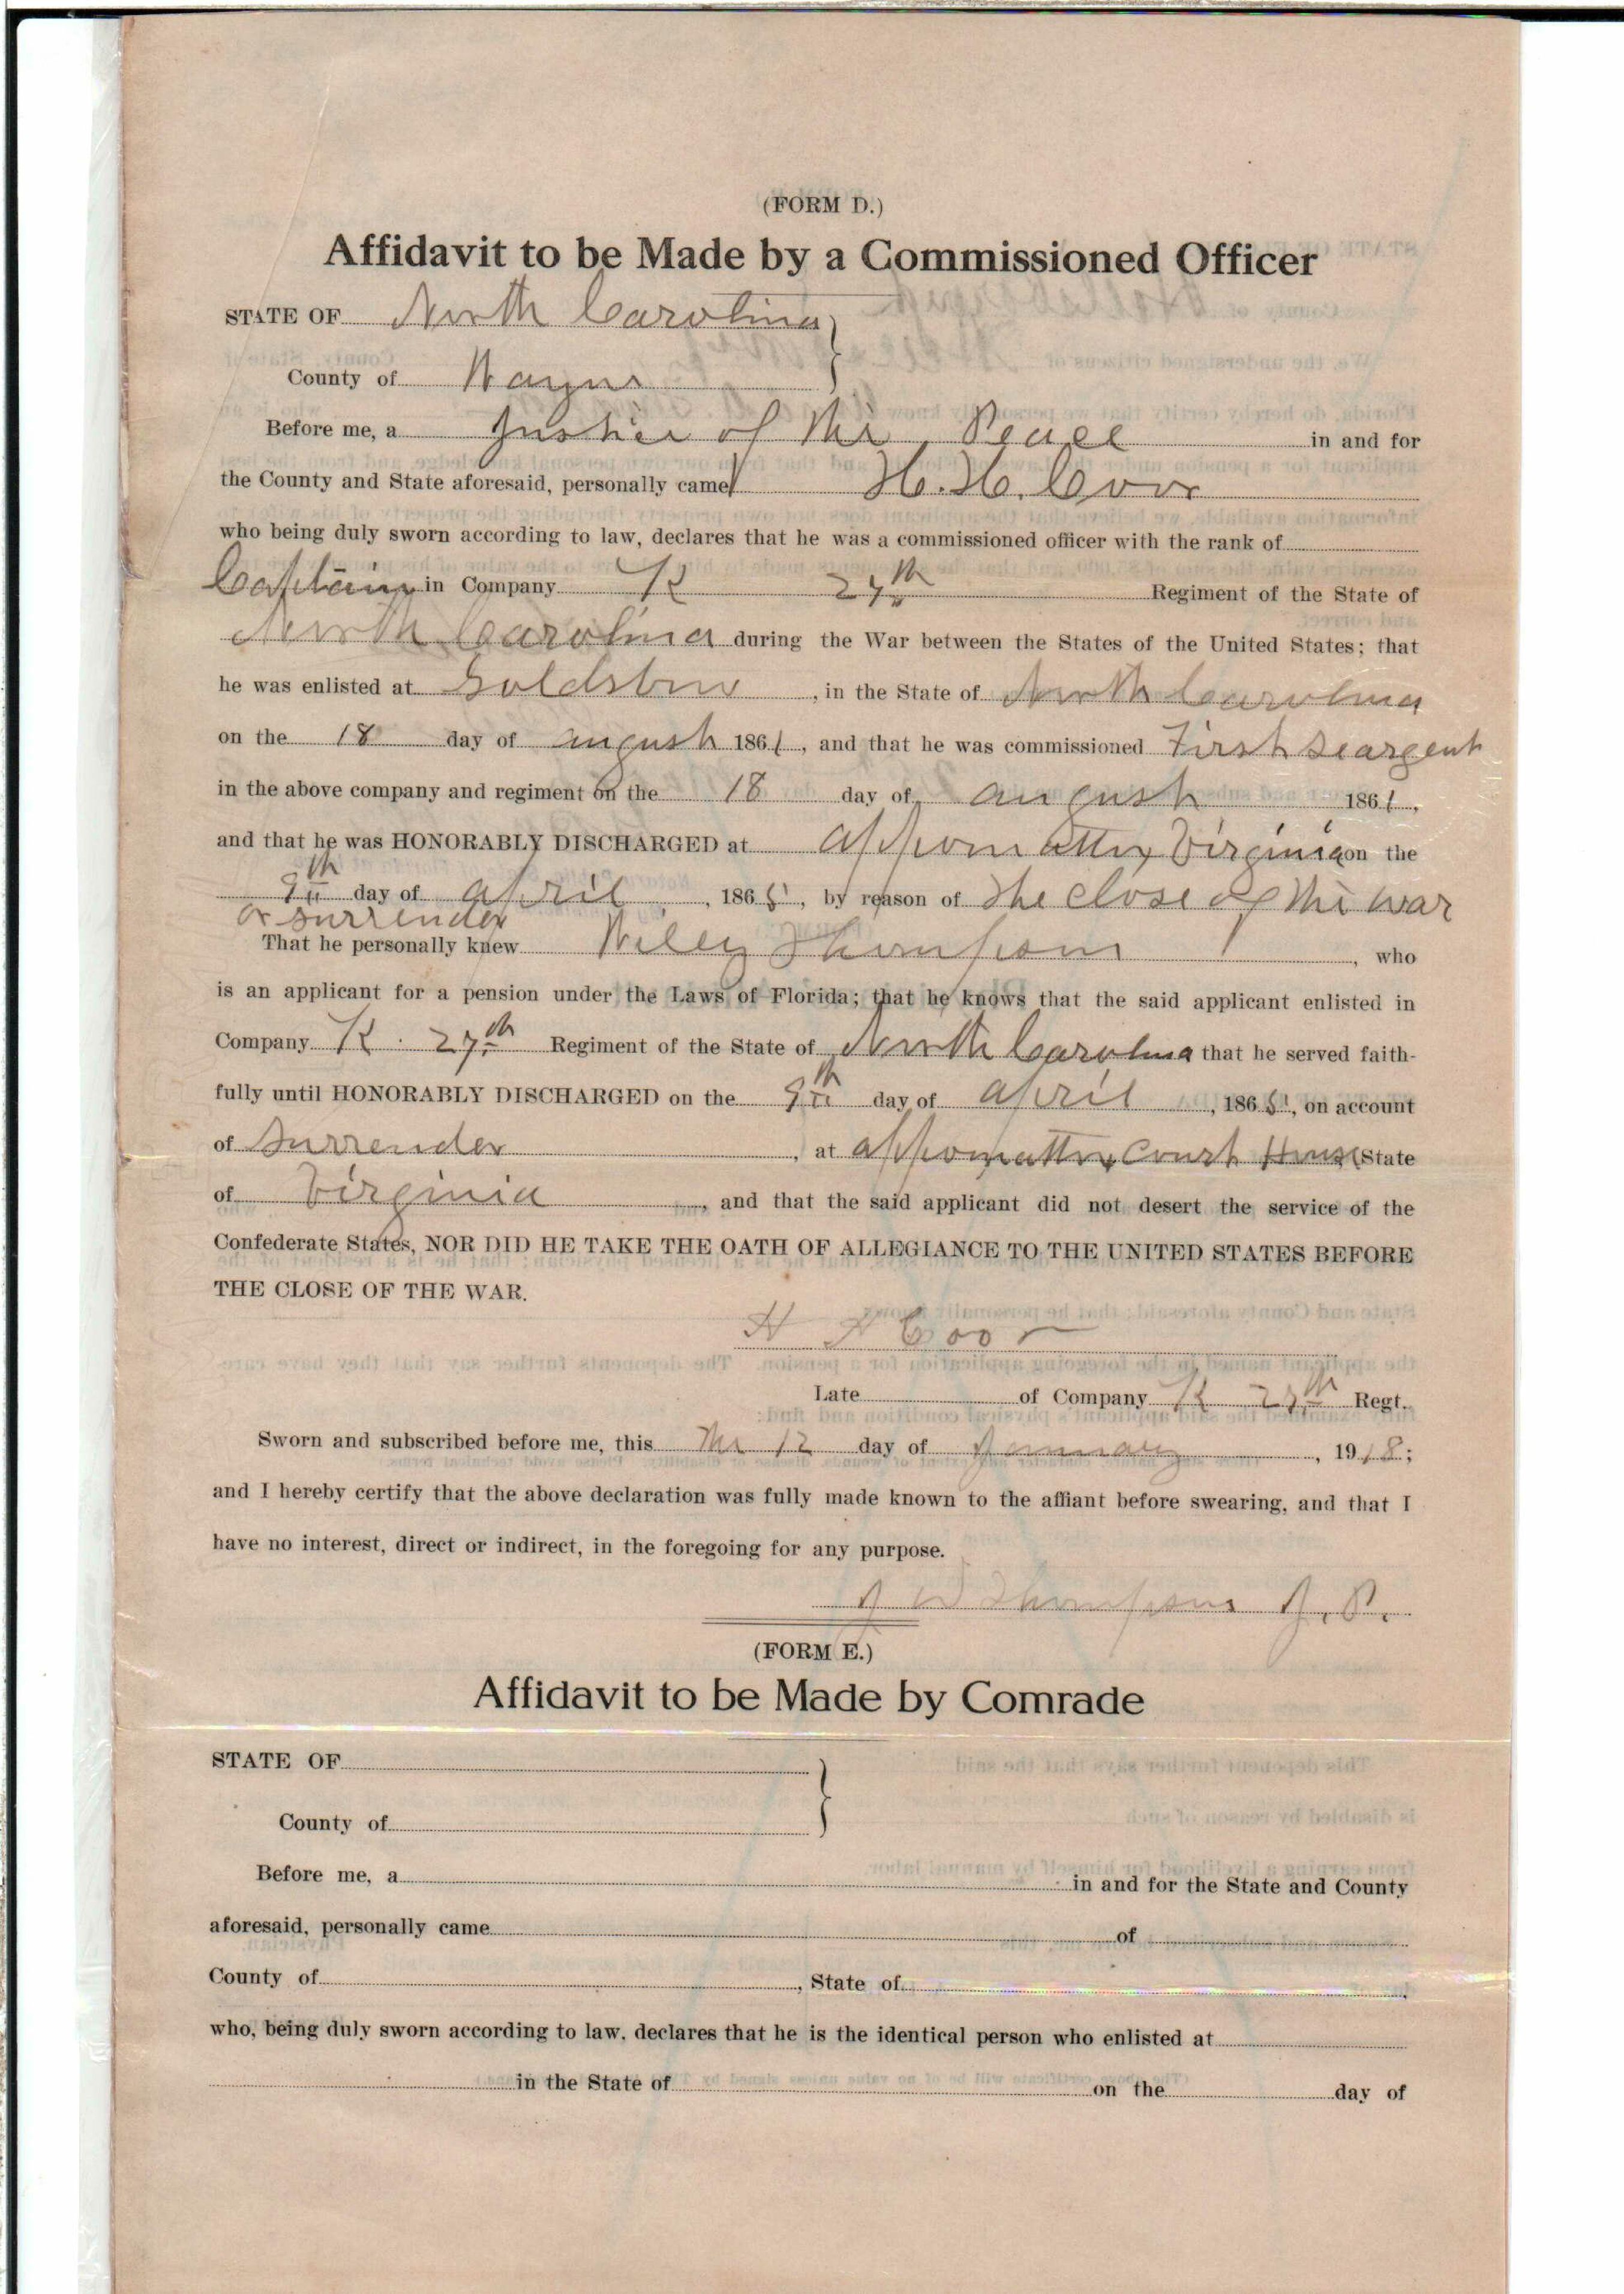 (FORM D.)
Affidavit to be Made by a Commissioned Officer
STATE OF North Carolina
County of Wayne
Before me, a Justice of the Peace in and for
the County and State aforesaid, personally came H. H. Coor
who being duly sworn according to law, declares that he was a commissioned officer with the rank of
Captain in Company K 27th Regiment of the State of
North Carolina during the War between the States of the United States; that
he was enlisted at Goldsboro, in the State of North Carolina
on the 18 day of august 1861, and that he was commissioned First Seargent
in the above company and regiment on the 18 day of august 1861,
and that he was HONORABLY DISCHARGED at appomattox Virginia on the
9th day of april, 1865, by reason of the close of the war
or surrender
That he personally knew Wiley Thompson, who
is an applicant for a pension under the Laws of Florida; that he knows that the said applicant enlisted in
Company K. 27th Regiment of the State of North Carolina that he served faith-
fully until HONORABLY DISCHARGED on the 9th day of april, 1865, on account
of surrender, at appomattox Court House State
of Virginia, and that the said applicant did not desert the service of the
Confederate States, NOR DID HE TAKE THE OATH OF ALLEGIANCE TO THE UNITED STATES BEFORE
THE CLOSE OF THE WAR.
H H Coor
Late of Company K 27th Regt.
Sworn and subscribed before me, this the 12 day of January, 1918;
and I hereby certify that the above declaration was fully made known to the affiant before swearing, and that I
have no interest, direct or indirect, in the foregoing for any purpose.
J W Thompson J. P.
(FORM E.)
Affidavit to be Made by Comrade
STATE OF
County of
Before me, a in and for the State and County
aforesaid, personally came of
County of, State of
who, being duly sworn according to law, declares that he is the identical person who enlisted at
in the State of on the day of